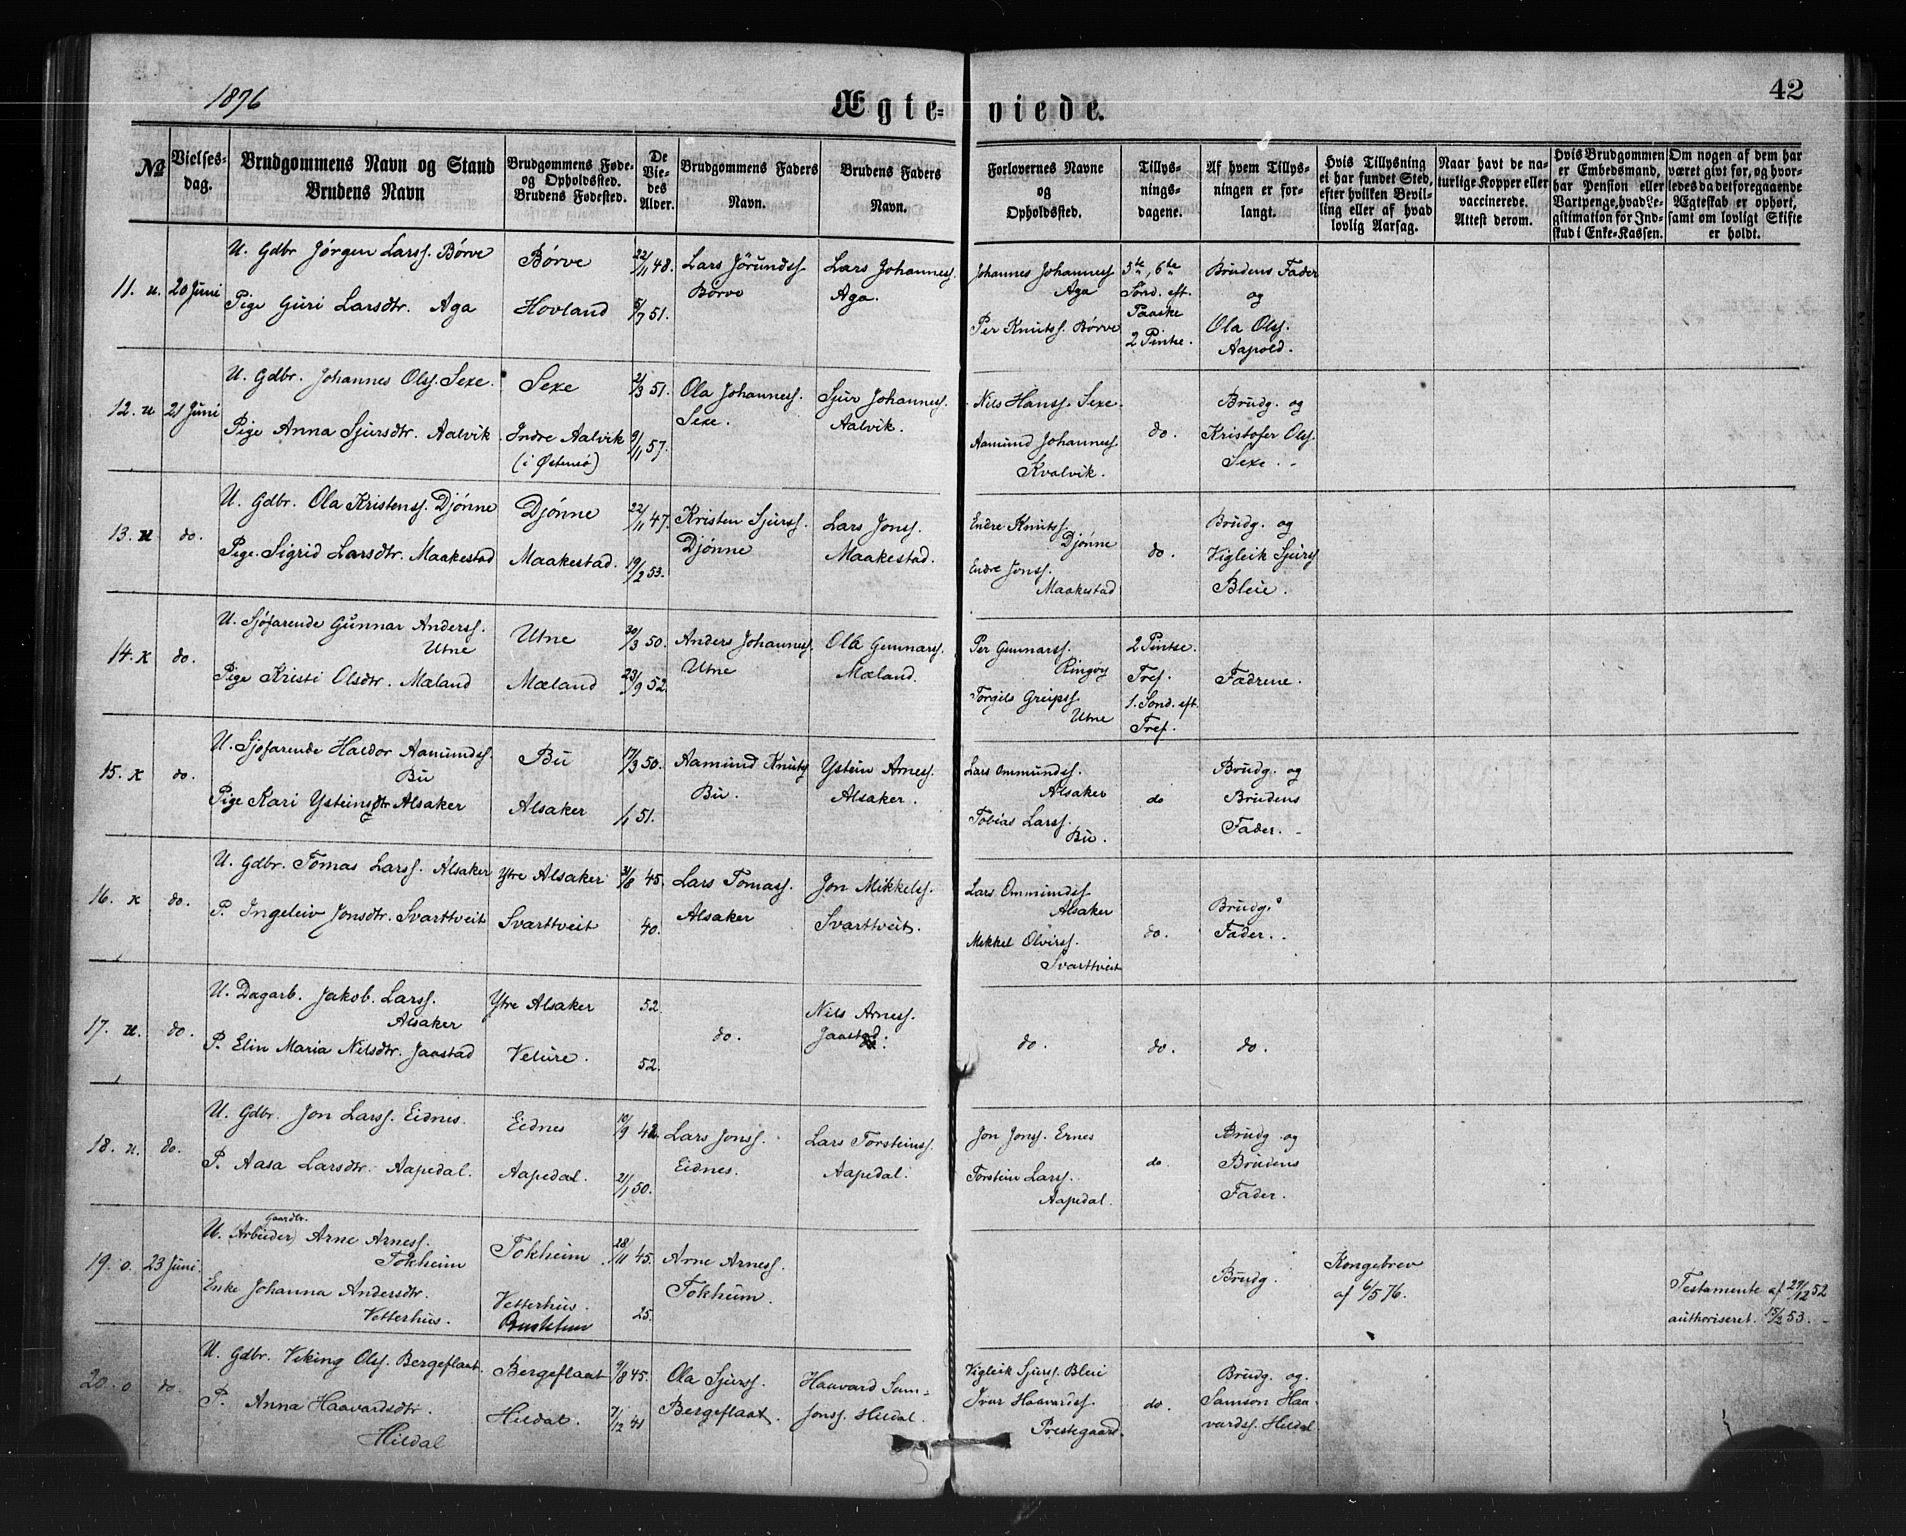 1876
Ægte-
viede.
42
№
Vielses-
dag.
Brudgommens Navn og Stand
Brudens Navn
Brudgommens Føde-
og Opholdssted.
Brudens Fødested.
De
Vie-
des
Alder.
Brudgommens Faders
Navn.
Brudens Faders
Navn.
Forlovernes Navne
og
Opholdssted.
Tillys-
nings-
dagene.
Af hvem Tillys-
ningen er for-
langt.
Hvis Tillysning
ei har fundet Sted,
efter hvilken Bevil-
ling eller af hvad
lovlig Aarsag.
Naar havt de na-
turlige Kopper eller
vaccinerede.
Attest derom.
Hvis Brudgommen
er Embedsmand,
har Pension eller
Vartpenge, hvad Le-
gitimation for Ind-
skud i Enke-Kassen.
Om nogen af dem har
været givt før, og hvor-
ledes da det foregaaende
Ægteskab er ophørt,
samt om lovligt Skifte
er holdt.
11. u. 20 Juni
U. Gdbr. Jörgen Larss. Börve
Pige Guri Larsdtr. Aga
Börve
Hovland
22/11 48.
5/7 51.
Lars Jörundss.
Börve
Lars Johanness.
Aga.
Johannes Johanness.
Aga
Per Knutss. Börve
5te, 6te
Sönd. eft.
Paaske
2 Pintse.
Brudens Fader
og
Ola Olss.
Aapold.
12. u 21 Juni
U. Gdbr. Johannes Olss. Sexe.
Pige Anna Sjursdtr. Aalvik
Sexe
Indre Aalvik
(i Østensö)
2/3 51.
9/11 57.
Ola Johanness.
Sexe.
Sjur Johanness.
Aalvik.
Nils Hanss. Sexe.
Aamund Johanness.
Kvalvik.
do.
Brudg. og
Kristofer Olss.
Sexe.
13. u do.
U. Gdbr. Ola Kristenss. Djönne
Pige. Sigrid Larsdtr. Maakestad
Djönne
Maakestad.
22/11 47.
19/2 53.
Kristen Sjurss.
Djönne
Lars Jonss.
Maakestad.
Endre Knutss.
Djönne
Endre Jonss.
Maakestad
do.
Brudg. og
Vigleik Sjurss
Bleie.
14. x do.
U. Sjöfarende Gunnar Anderss.
Utne
Pige Kristi Olsdtr. Mæland
Utne
Mæland
30/3 50.
23/9 52.
Anders Johanness.
Utne
Ola Gunnarss.
Mæland.
Per Gunnarss.
Ringöy
Torgils Greipss
Utne
2 Pintse.
Tref.
1. Sönd. eft.
Tref.
Fædrene.
15. x do.
U. Sjöfarende Haldor Aamundss.
Bu
Pige Kari Ysteinsdtr Alsaker
Bu
Alsaker
17/3 50.
1/1 51.
Aamund Knutss
Bu.
Ystein Arness.
Alsaker.
Lars Ommundss.
Alsaker
Tobias Larss.
Bu.
do
Brudg. og
Brudens
Fader.
16. x do.
U. Gdbr. Tomas Larss. Alsaker
P. Ingeleiv Jonsdtr. Svarttveit
Ytre Alsaker
Svarttveit
31/8 45.
40.
Lars Tomass.
Alsaker
Jon Mikkelss.
Svarttveit.
Lars Ommundss.
Alsaker
Mikkel Olvirss.
Svarttveit
do.
Brudgs
Fader.
17. u. do.
U. Dagarb. Jakob. Larss.
Alsaker
P. Elin Maria Nilsdtr. Jaastad
Ytre Alsaker
Velure.
52.
52.
do.
Nils Arness.
Jaastad.
do.
do.
do.
18. u. do.
U. Gdbr. Jon Larss. Eidnes.
P. Aasa Larsdtr. Aapedal.
Eidnes
Aapedal.
10/9 42.
21/1 50.
Lars Jonss.
Eidnes.
Lars Torsteinss.
Aapedal.
Jon Jonss. Ernes
Torstein Larss.
Aapedal.
do
Brudg. og
Brudens
Fader.
19. o. 23 Juni.
Gaardbr.
U. (Arbeider) Arne Arness.
Tokheim
Enke Johanna Andersdtr.
Vetterhus.
Tokheim
Vetterhus.
28/11 45.
25.
Arne Arness.
Tokheim.
Brudg.
Kongebrev
af 6/5 76.
Testamente af 29/12 52
authoriseret. 15/2 53.
20. o do.
U. Gdbr. Viking Olss. Bergeflaat.
P. Anna Haavardsdtr.
Hildal
Bergeflaat
Hildal.
9/8 45.
7/12 41
Ola Sjurss.
Bergeflaat.
Haavard Sam-
sonss. Hildal.
Vigleik Sjurss. Bleie
Ivar Haavardss.
Prestegaard.
do.
Brudg. og
Samson Haa-
vardss. Hildal